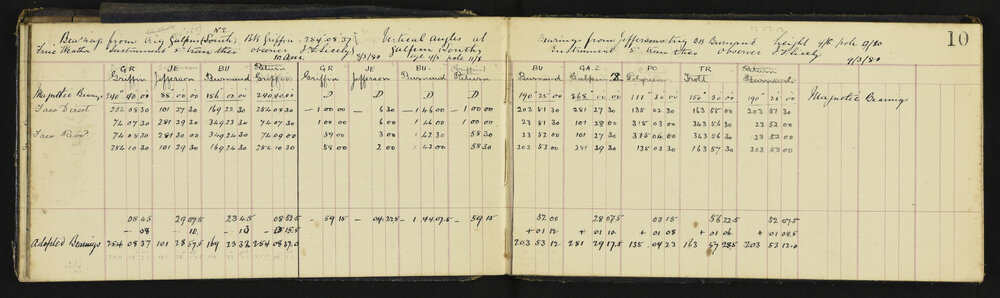 No 2
Bearings from Trig Galpin (South) Bk Griffin - 254° 08' 37"
Fine Weather Instrument 5" tran theo observer
10 am 9/3/80
Vertical Angles at
Galpin South
hgt of pole 11/8
GR JE BU Return GR JE BU Griffin
Griffin Jefferson Burnand Griffin Griffin Jefferson Burnand Return
Magnetic Bearings 240° 40 00 88 00 00 156 00 00 240 40 00 D D D
Face Direct 254 08 30 101 27 30 169 22 30 254 08 30 - 1 00 00 - 6 30 - 1 46 00 - 1 00 00
74 07 30 281 29 30 349 23 30 74 07 30 1 00 00 6 00 1 46 00 1 00 00
74 08 30 281 30 00 349 24 30 74 09 00 59 00 3 00 1 42 30 58 30
254 10 30 101 29 30 169 24 30 254 10 30 58 00 2 00 1 42 00 58 30
08 45 29 07.5 23 45 08 52.5 - 59 15 - 04 22.5 - 1 44 07.5 - 59 15
- 08 - 10 - 13 - 15.5
Adopted Bearings 254 08 37 101 28 57.5 169 23 32 254 08 37.0
Bearings from Jefferson trig BB Burnand height of pole 9/80
Instrument 5" tran theo observer
9/3/80
10
BU GA 2 PO TR Return
Burnand Galpin Trott Burnand
190° 25 00 268° 00 00 111° 30 00 150° 30 00 190° 25 00 Magnetic Bearings
203 51 30 281 27 30 135 02 30 163 55 00 203 51 30
23 51 30 101 28 00 315 03 00 343 56 30 23 52 00
23 52 00 101 27 30 315 04 00 343 56 30 23 52 00
203 53 00 281 29 30 135 03 30 163 57 30 203 53 00
52 00 28 07.5 03 15 56 22.5 52 07.5
+ 01 12 + 01 10 + 01 08 + 01 06 + 01 04.5
203 53 12 281 29 17.5 135 04 23 163 57 28.5 203 53 12.0